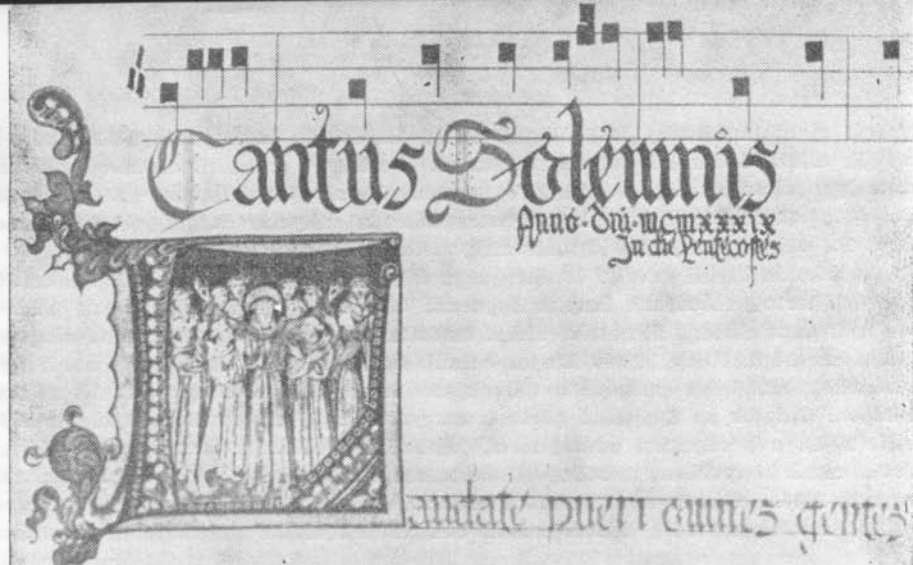 Cantus Solemnis
Anno · Dni · MCMXXXIX
In die Pentecostes
Laudate pueri omnes gentes